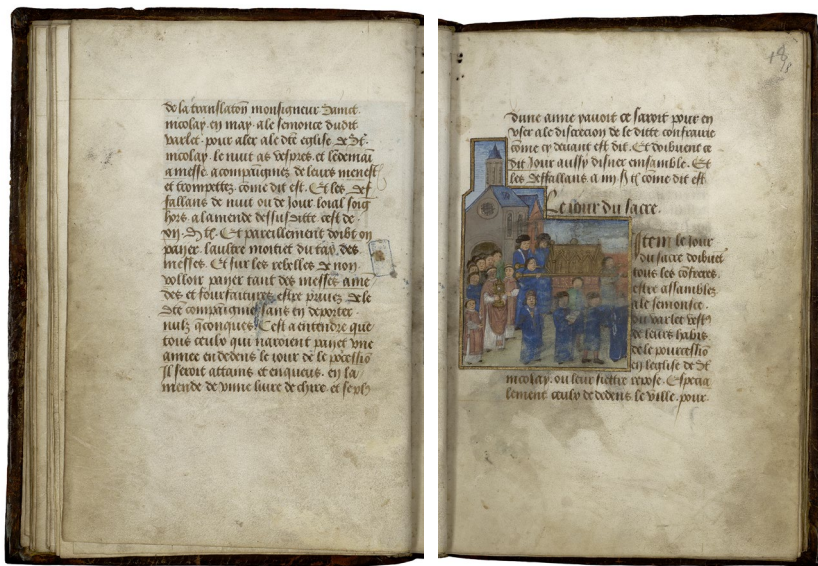 de la translaton monsigneur Sainct.
nicolay. en may. a le semonce dudit
varlet. pour aler a le dte eglise de St.
nicolay. le nuit as vespres. et lédemaī
a messe acompaignez de leurs menest
et trompettez. cōme dit est. Et les def
fallans de nuit ou de Jour loial soig
hors. a lamende dessusditte. cest de.
Et pareillement doibt on
paner. laultre moitiet du tax des.
messes. Et sur les rebelles de non
volloir paner taut des messes ame
des et fourfaitures estre privez de le
dte compaignie sans en deporter.
nulz qconques. Cest a entendre que
tous ceulx qui naroient paiiet vne
annee en dedens le iour de le pocessiō
Il seroit attains et enqueus. en la.
mende de vnne livre de chire. et se plꝰ
dune anne pavoit ce saroit pour en
vser a le discrecion de le ditte confrarie
cōme cy devant est dit. Et doibuent ce
dit Jour aussy disner ensamble. Et
les deffallans a cōme dit est.
Le iour du sacre.
Item le iour
du sacre doibuēt
tous les cōfreres.
estre assamblez
a le semonse.
du varlet vestꝰ
de leurs habis.
de le pourcessiō
en leglise de St
nicolay. ou leur fiettre repose. Especia
lement ceulx de dedens le ville. pour.